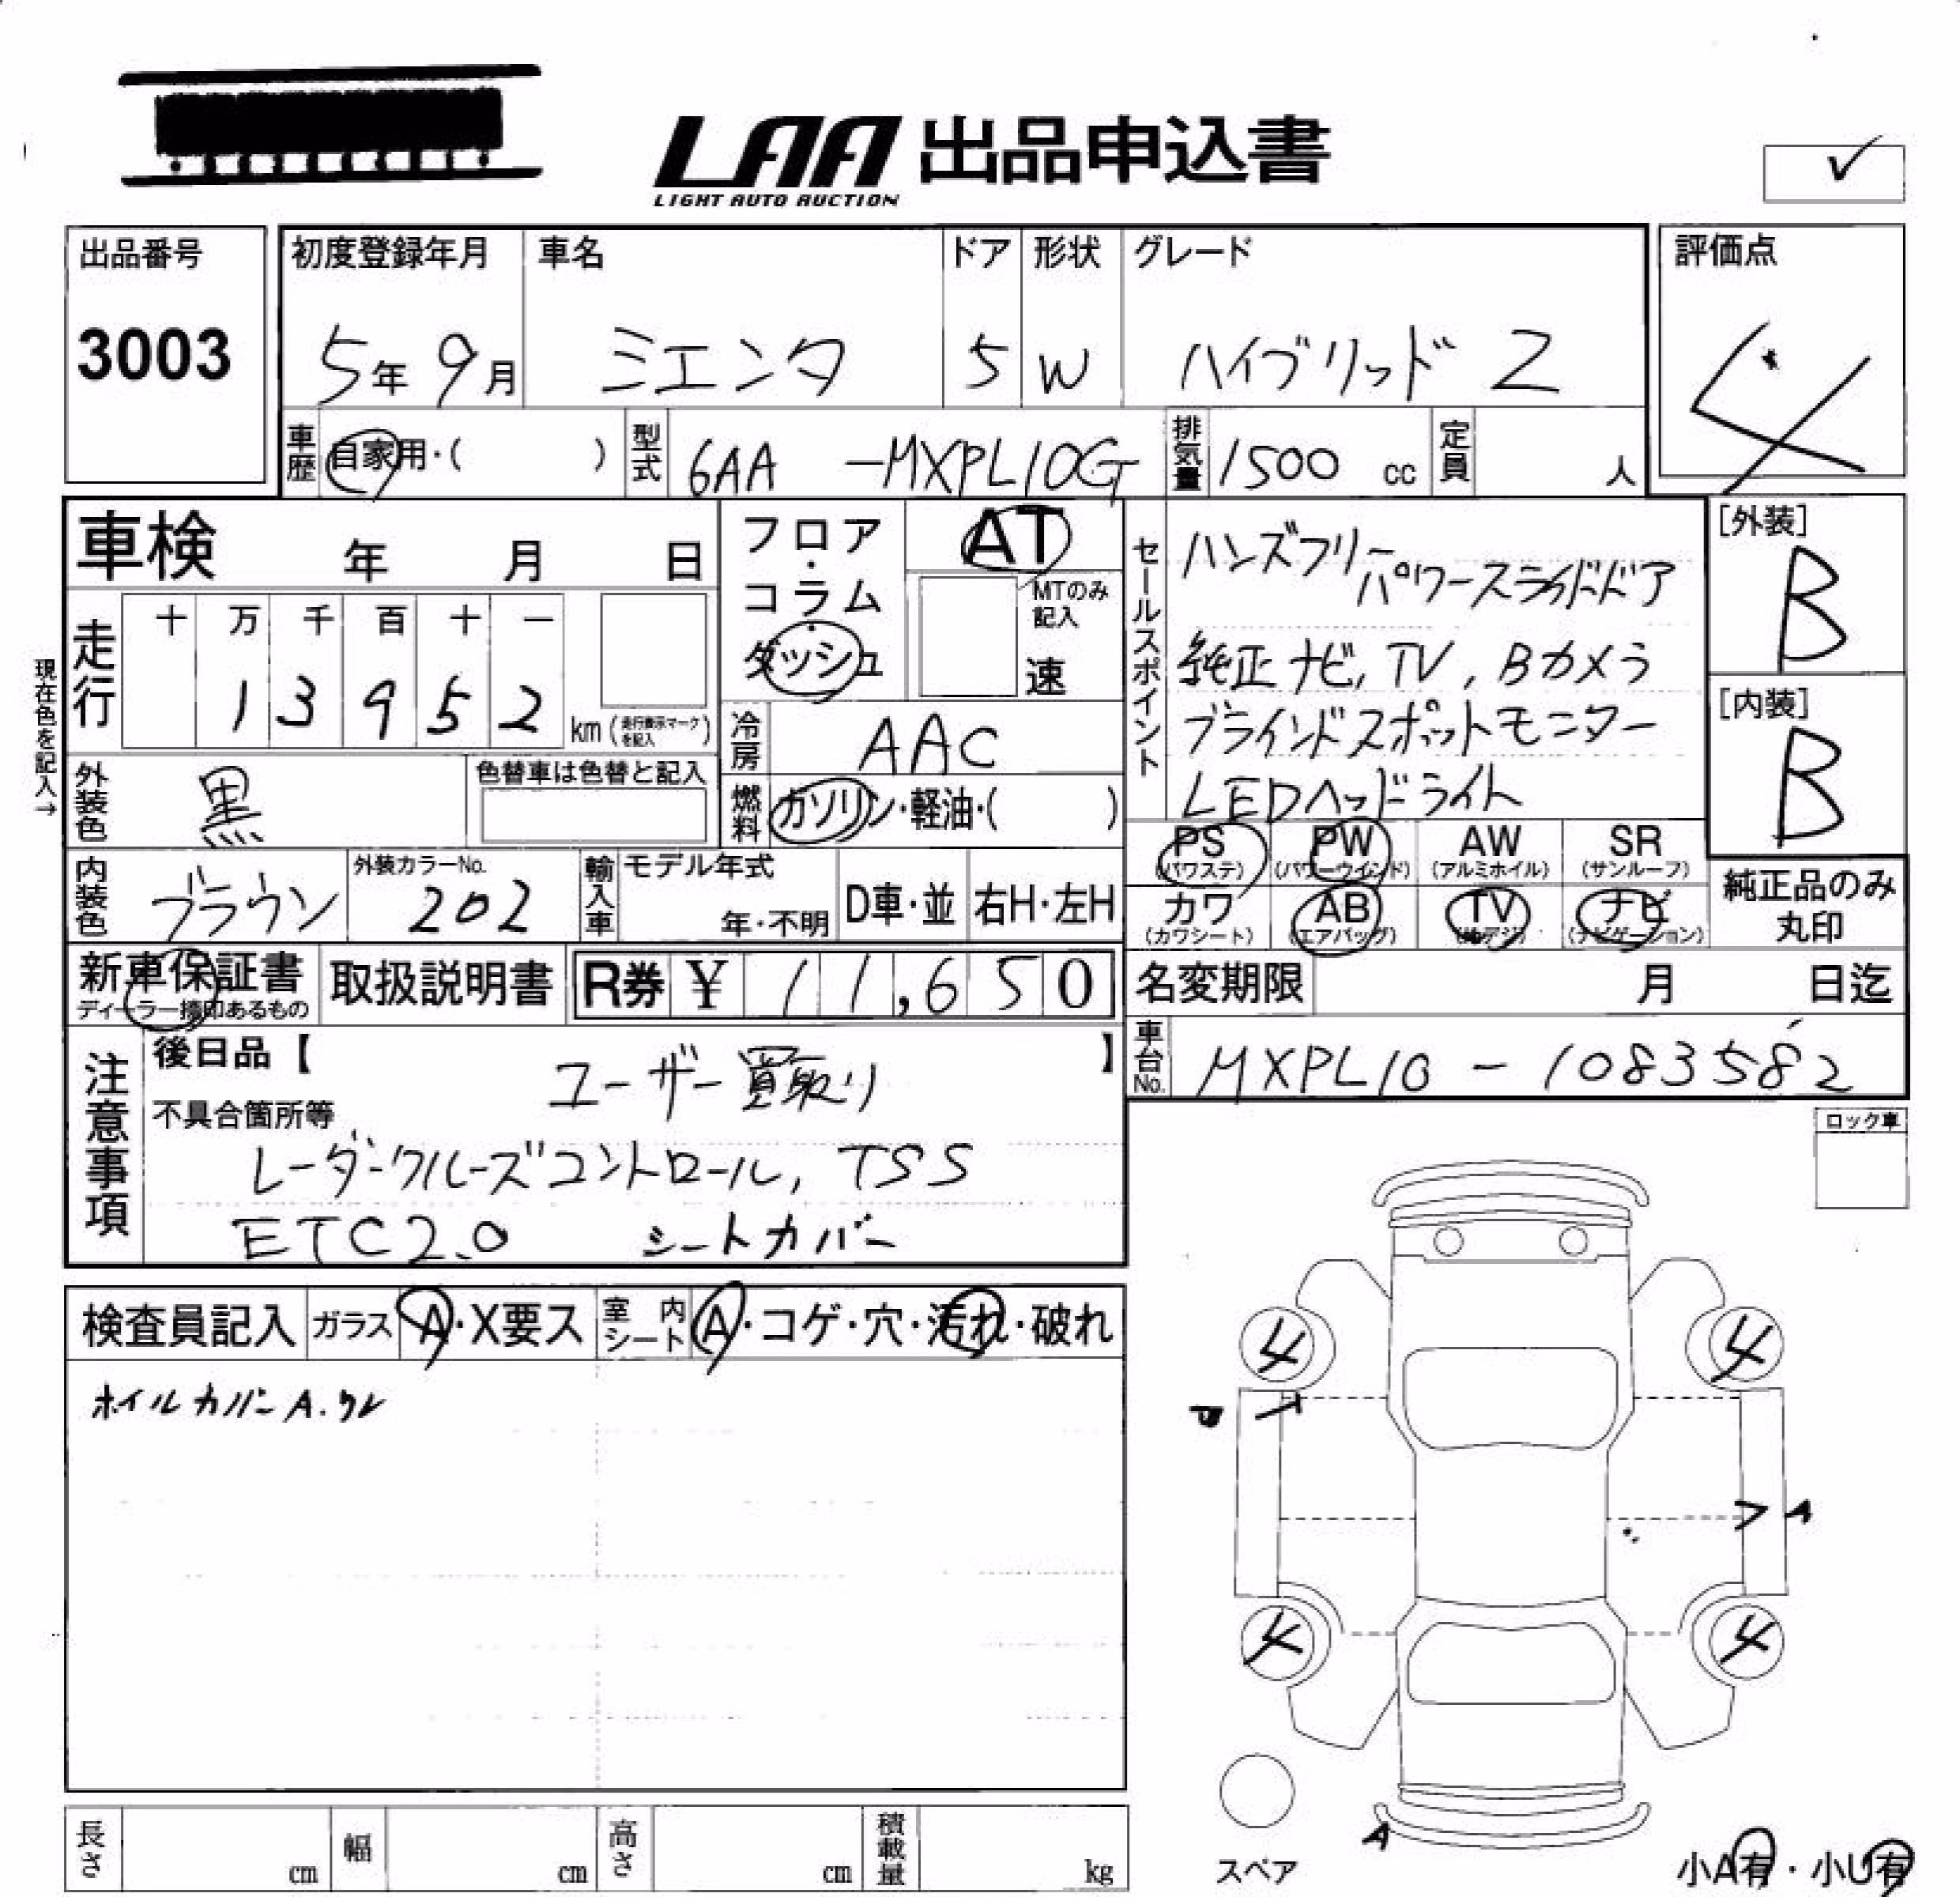 LAA 出品申込書
LIGHT AUTO AUCTION
✓
出品番号
3003
初度登録年月 車名 ドア 形状 グレード
5年 9月 シエンタ 5 W ハイブリッド Z
評価点
4
車歴 自家用・( ) 型式 6AA -MXPL10G 排気量 1500 cc 定員 人
車検 年 月 日
フロア・コラム・ダッシュ
AT
MTのみ記入
速
セールスポイント
ハンズフリー
パワースライドドア
純正ナビ, TV, Bカメラ
ブラインドスポットモニター
LEDヘッドライト
[外装]
B
[内装]
B
現在色を記入→
走行
十 万 千 百 十 一
1 3 9 5 2
km (走行表示マークを記入)
冷房 AAC
外装色 黒
色替車は色替と記入
燃料 ガソリン・軽油・( )
PS PW AW SR
(パワステ) (パワーウインド) (アルミホイル) (サンルーフ)
カワ AB TV ナビ
(カワシート) (エアバッグ) (地デジ) (ナビゲーション)
純正品のみ
丸印
内装色 ブラウン
外装カラーNo.
202
輸入車 モデル年式
年・不明
D車・並 右H・左H
新車保証書
ディーラー捺印あるもの
取扱説明書
R券 ¥ 11,650
名変期限 月 日迄
車台No. MXPL10 - 1083582
注意事項
後日品【 】
ユーザー買取り
不具合箇所等
レーダークルーズコントロール, TSS
ETC2.0 シートカバー
ロック車
検査員記入 ガラス A・X要ス 室内シート A・コゲ・穴・汚れ・破れ
ホイルカバーA.ワレ
4 4
A
4 4
A
スペア
小A有・小U有
長さ cm 幅 cm 高さ cm 積載量 kg